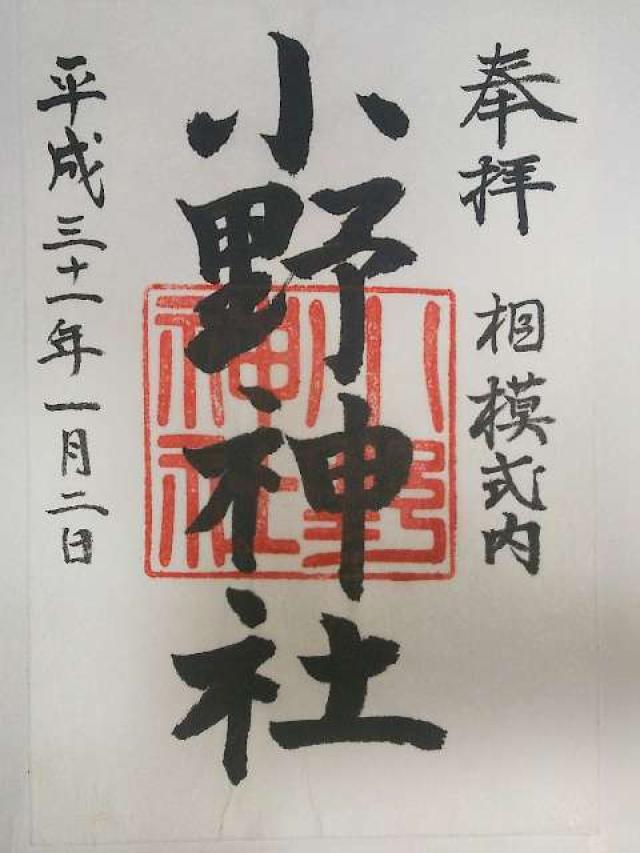 奉拝 相模式内
小野神社
小野神社
平成三十一年一月二日